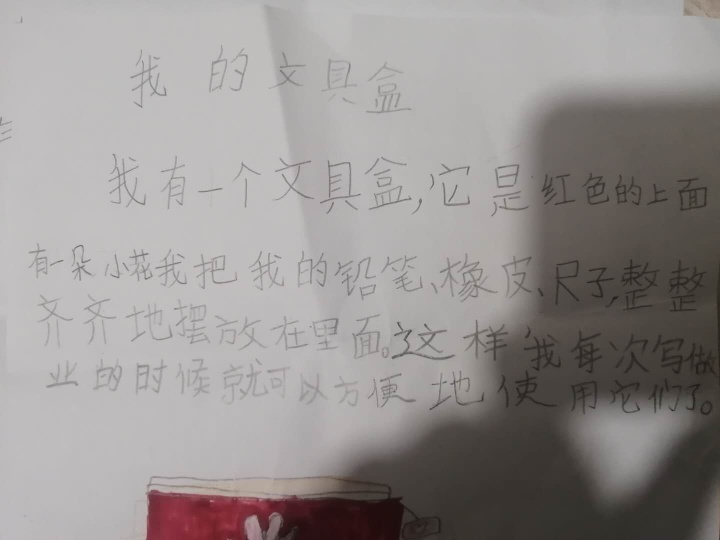 我的文具盒
我有一个文具盒,它是红色的上面
有一朵小花我把我的铅笔、橡皮、尺子,整整
齐齐地摆放在里面。这样,我每次写做
业的时候就可以方便地使用它们了。